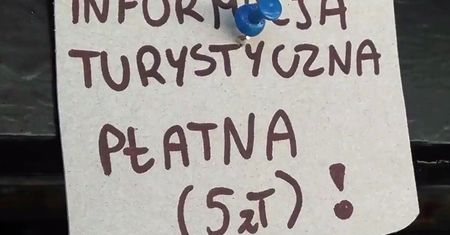 INFORMACJA
TURYSTYCZNA
PŁATNA
(5 zł) !